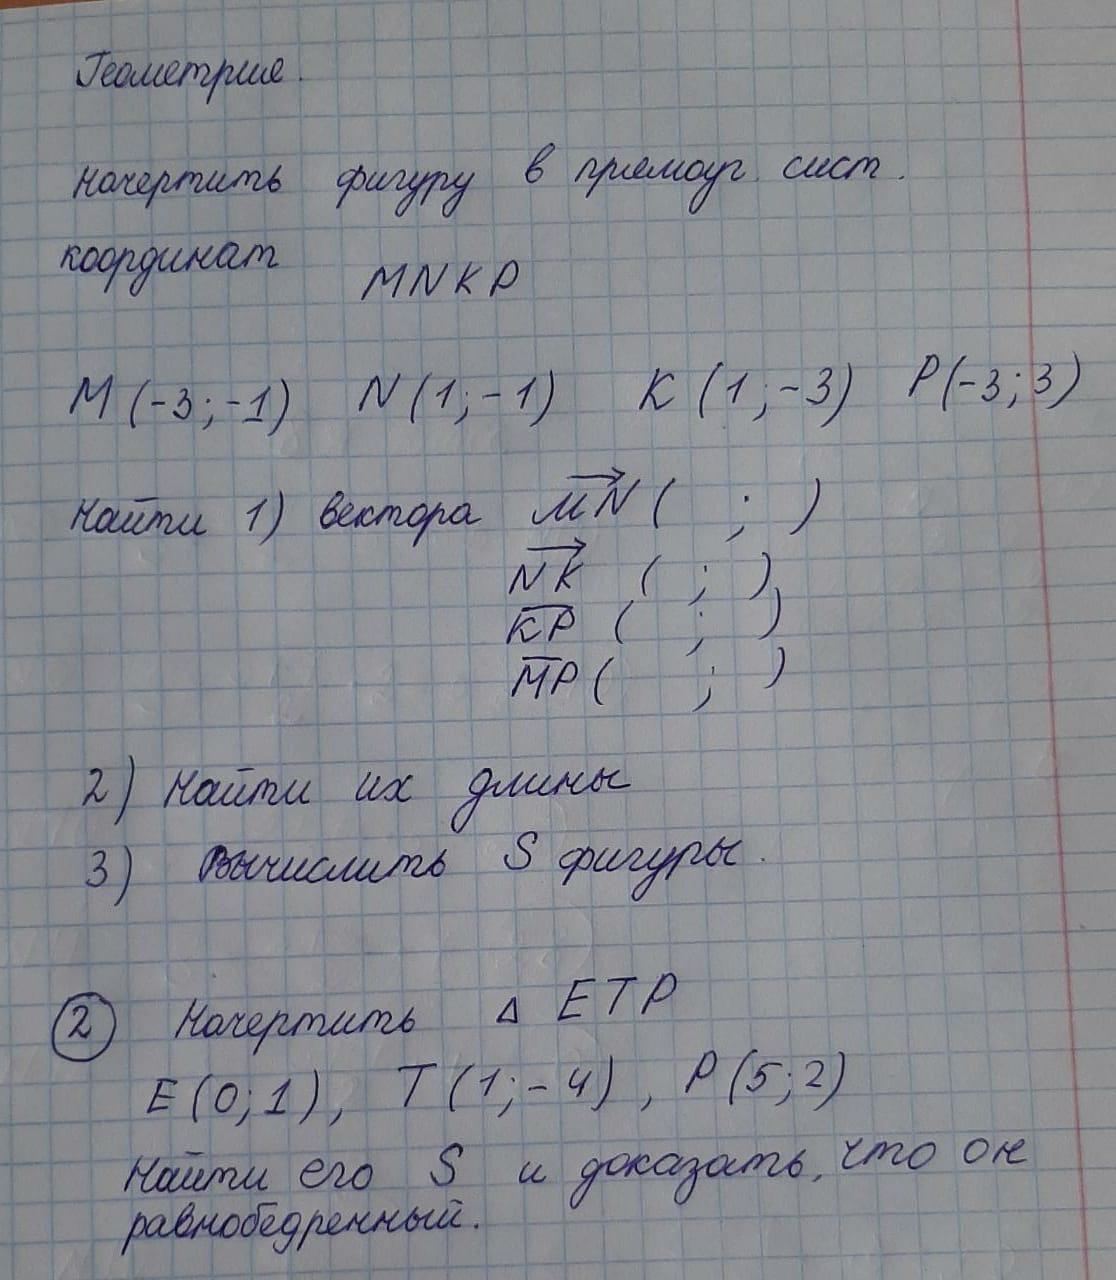 Геометрия.
Начертить фигуру в прямоуг. сист.
координат MNKP
M (-3 ; -1) N (1 ; -1) K (1 ; -3) P (-3 ; 3)
Найти 1) вектора MN ( ; )
NK ( ; )
KP ( ; )
MP ( ; )
2) Найти их длины
3) Вычислить S фигуры.
2 Начертить Δ ETP
E (0; 1), T (1; -4), P (5; 2)
Найти его S и доказать, что он
равнобедренный.